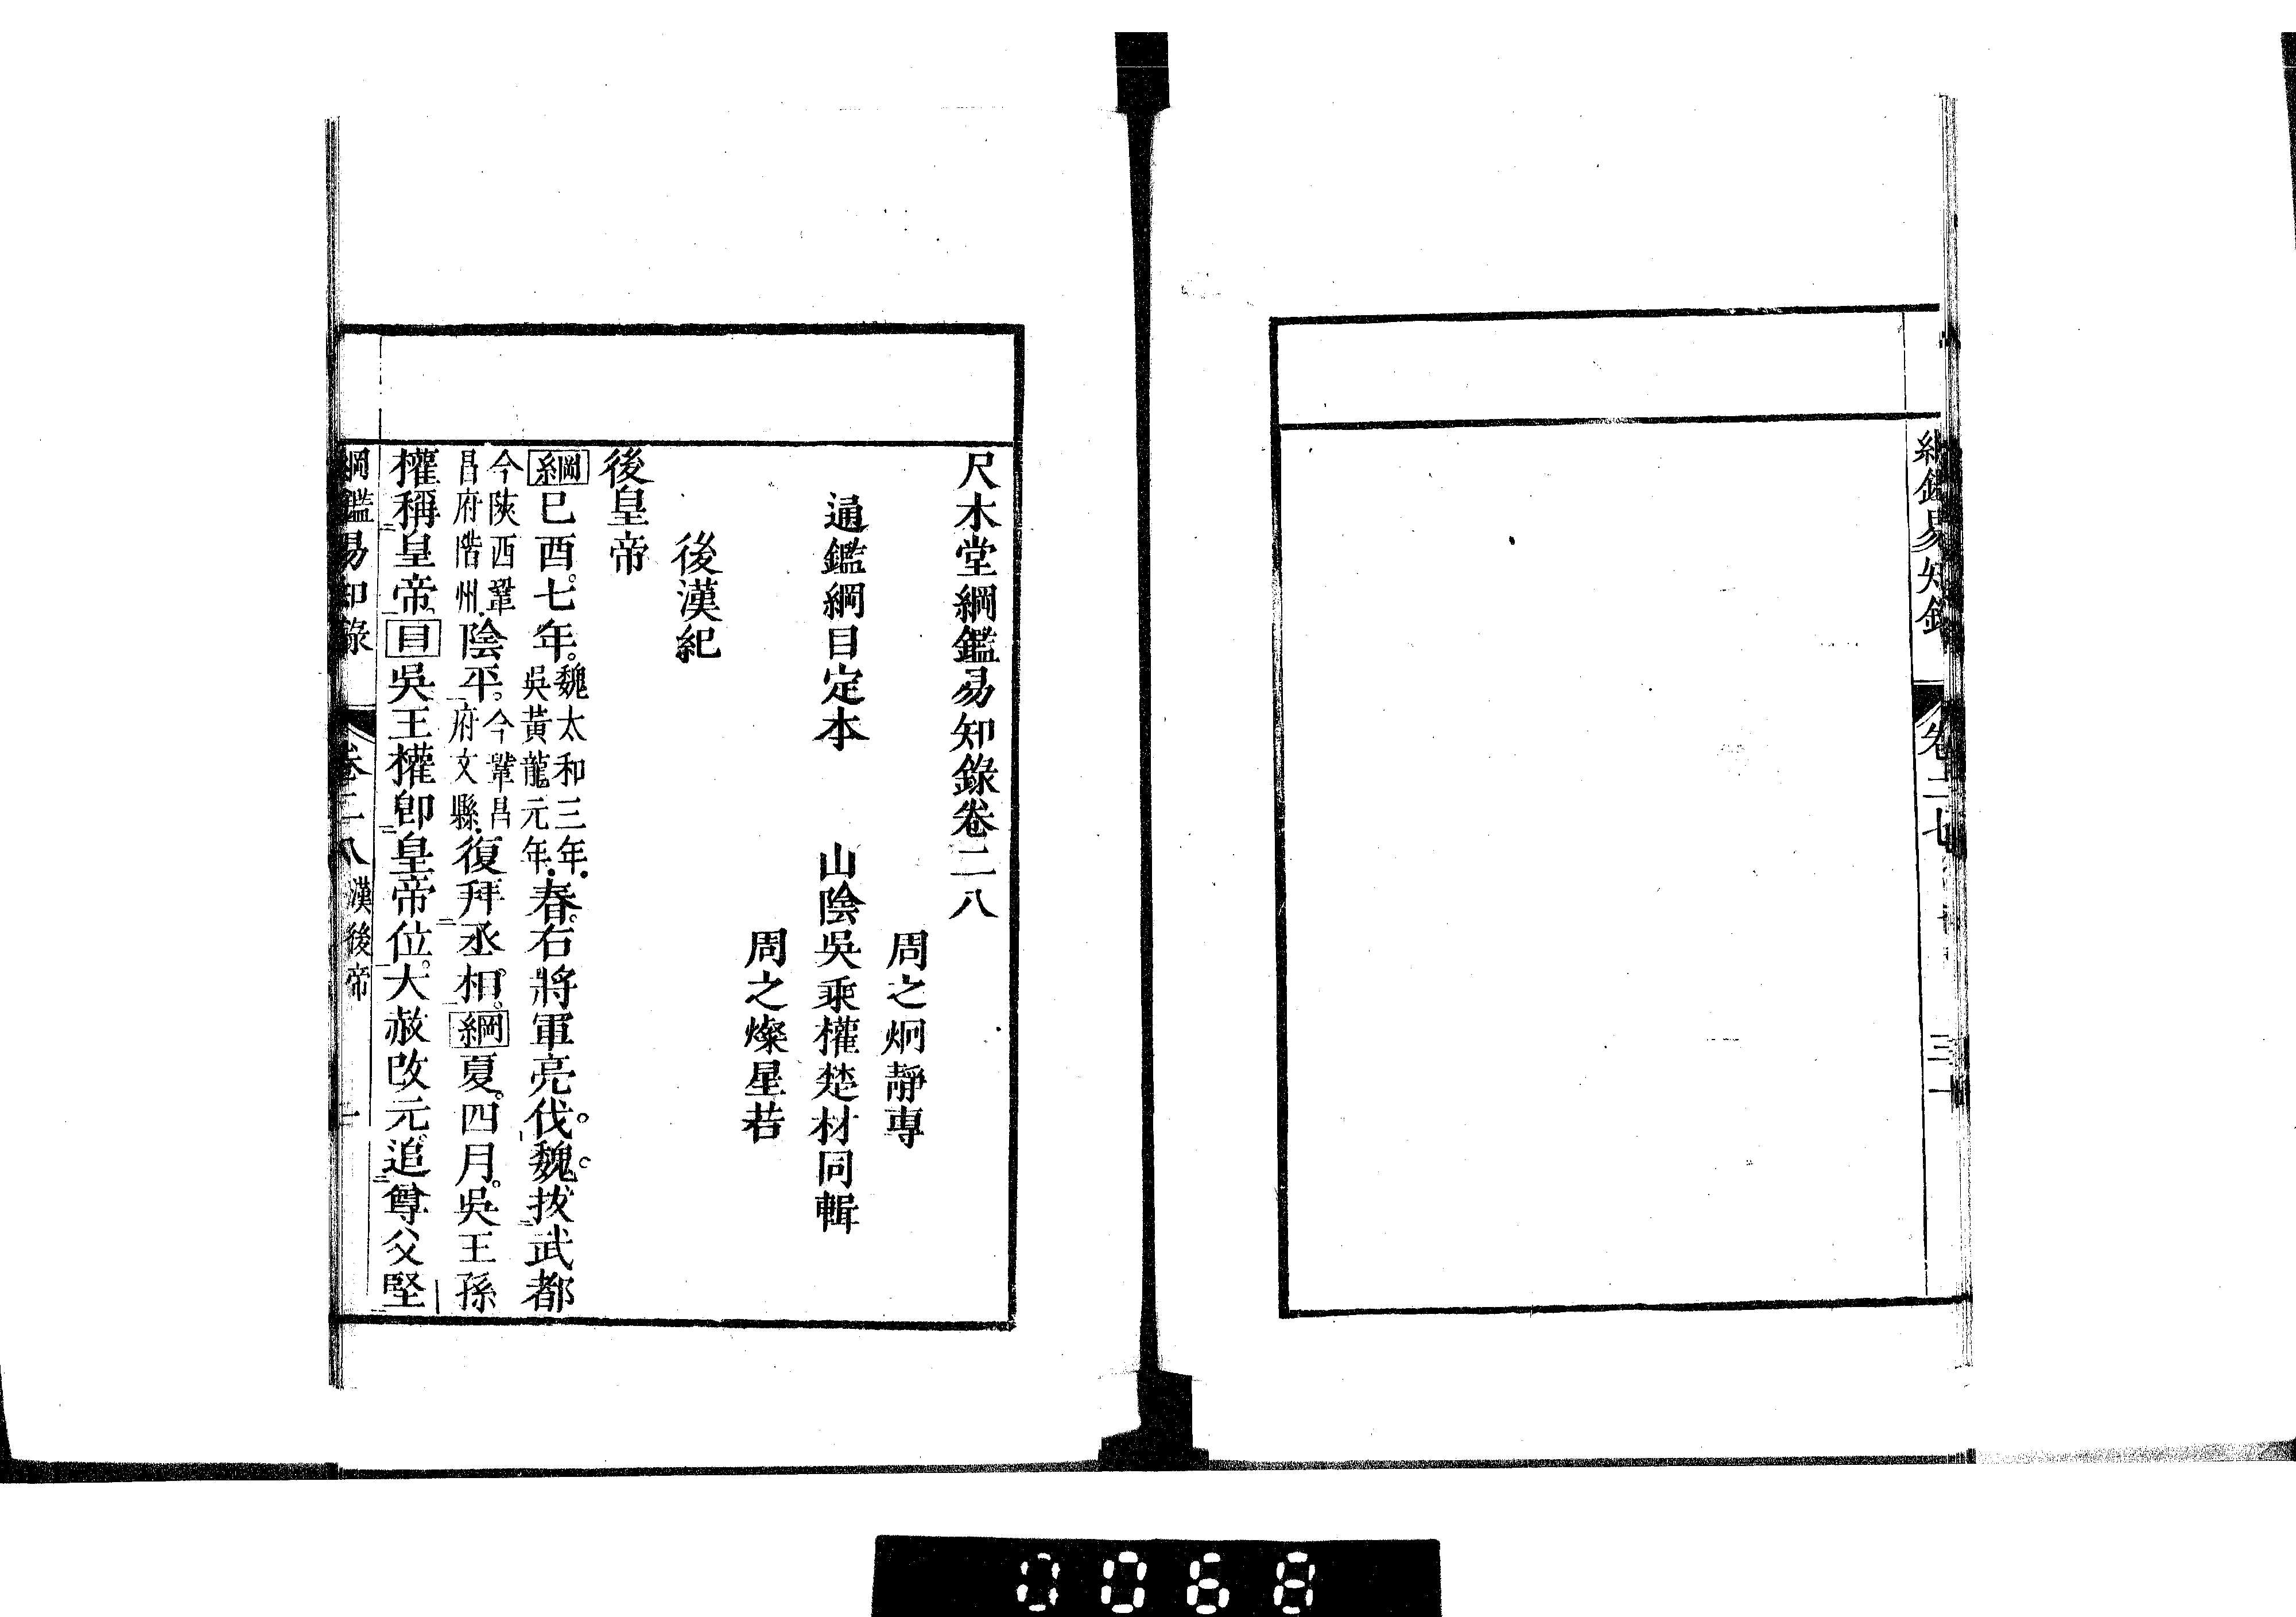 綱鑑易知錄 卷二七 三十
尺木堂綱鑑易知錄卷二八
周之炯靜專
通鑑綱目定本 山陰吳乘權楚材同輯
周之燦星若
後漢紀
後皇帝
綱巳酉七年。魏太和三年。吳黃龍元年。春。右將軍亮伐魏。拔武都
今陝西鞏昌府階州。陰平。今鞏昌府文縣。復拜丞相。綱夏。四月。吳王孫
權稱皇帝。目吳王權卽皇帝位。大赦改元。追尊父堅
綱鑑易知錄 卷二八 漢後帝 一
0068